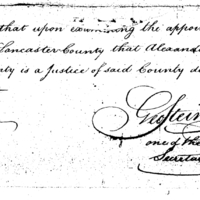 that upon examining the appoi
Lancaster County that Alexand
ty is a Justice of said County d
Geo Stein
one of the
Secreta